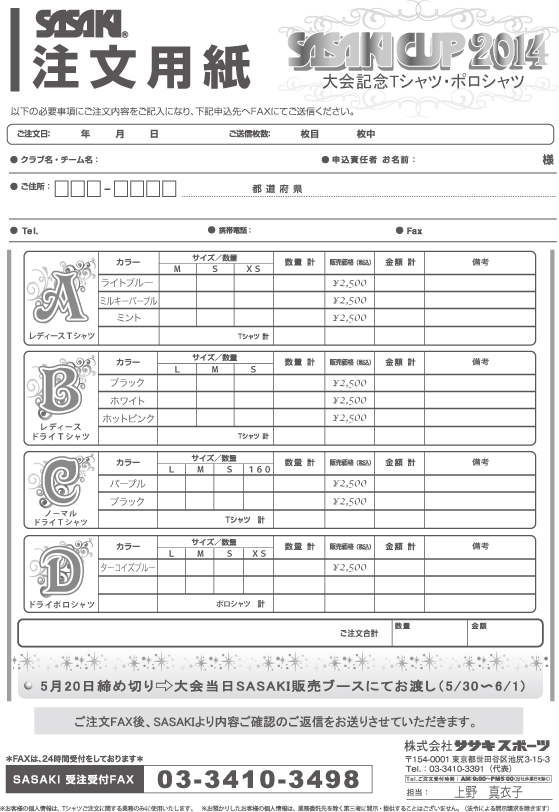 SASAKI®
注文用紙
SASAKI CUP 2014
大会記念Tシャツ・ポロシャツ
以下の必要事項にご注文内容をご記入になり、下記申込先へFAXにてご送信ください。
ご注文日: 年 月 日 ご送信枚数: 枚目 枚中
● クラブ名・チーム名： ● 申込責任者 お名前： 様
● ご住所： － 都道府県
● Tel. ● 携帯電話： ● Fax
A
レディースTシャツ
カラー サイズ／数量 数量 計 販売価格（税込） 金額 計 備考
M S XS
ライトブルー ¥2,500
ミルキーパープル ¥2,500
ミント ¥2,500
Tシャツ 計
B
レディース
ドライTシャツ
カラー サイズ／数量 数量 計 販売価格（税込） 金額 計 備考
L M S
ブラック ¥2,500
ホワイト ¥2,500
ホットピンク ¥2,500
Tシャツ 計
C
ノーマル
ドライTシャツ
カラー サイズ／数量 数量 計 販売価格（税込） 金額 計 備考
L M S 160
パープル ¥2,500
ブラック ¥2,500
Tシャツ 計
D
ドライポロシャツ
カラー サイズ／数量 数量 計 販売価格（税込） 金額 計 備考
L M S XS
ターコイズブルー ¥2,500
ポロシャツ 計
ご注文合計 数量 金額
5月20日締め切り⇨大会当日SASAKI販売ブースにてお渡し（5/30～6/1）
ご注文FAX後、SASAKIより内容ご確認のご返信をお送りさせていただきます。
＊FAXは、24時間受付をしております＊
SASAKI 受注受付FAX 03-3410-3498
株式会社 ササキスポーツ
〒154-0001 東京都世田谷区池尻3-15-3
Tel.：03-3410-3391（代表）
Tel.ご注文受付時間：AM9:00~PM5:00
担当： 上野 真衣子
※お客様の個人情報は、Tシャツご注文に関する業務のみに使用いたします。 ※お預かりしたお客様の個人情報は、業務委託先を除く第三者に開示・提供することはございません。（法令による開示請求を除きます）